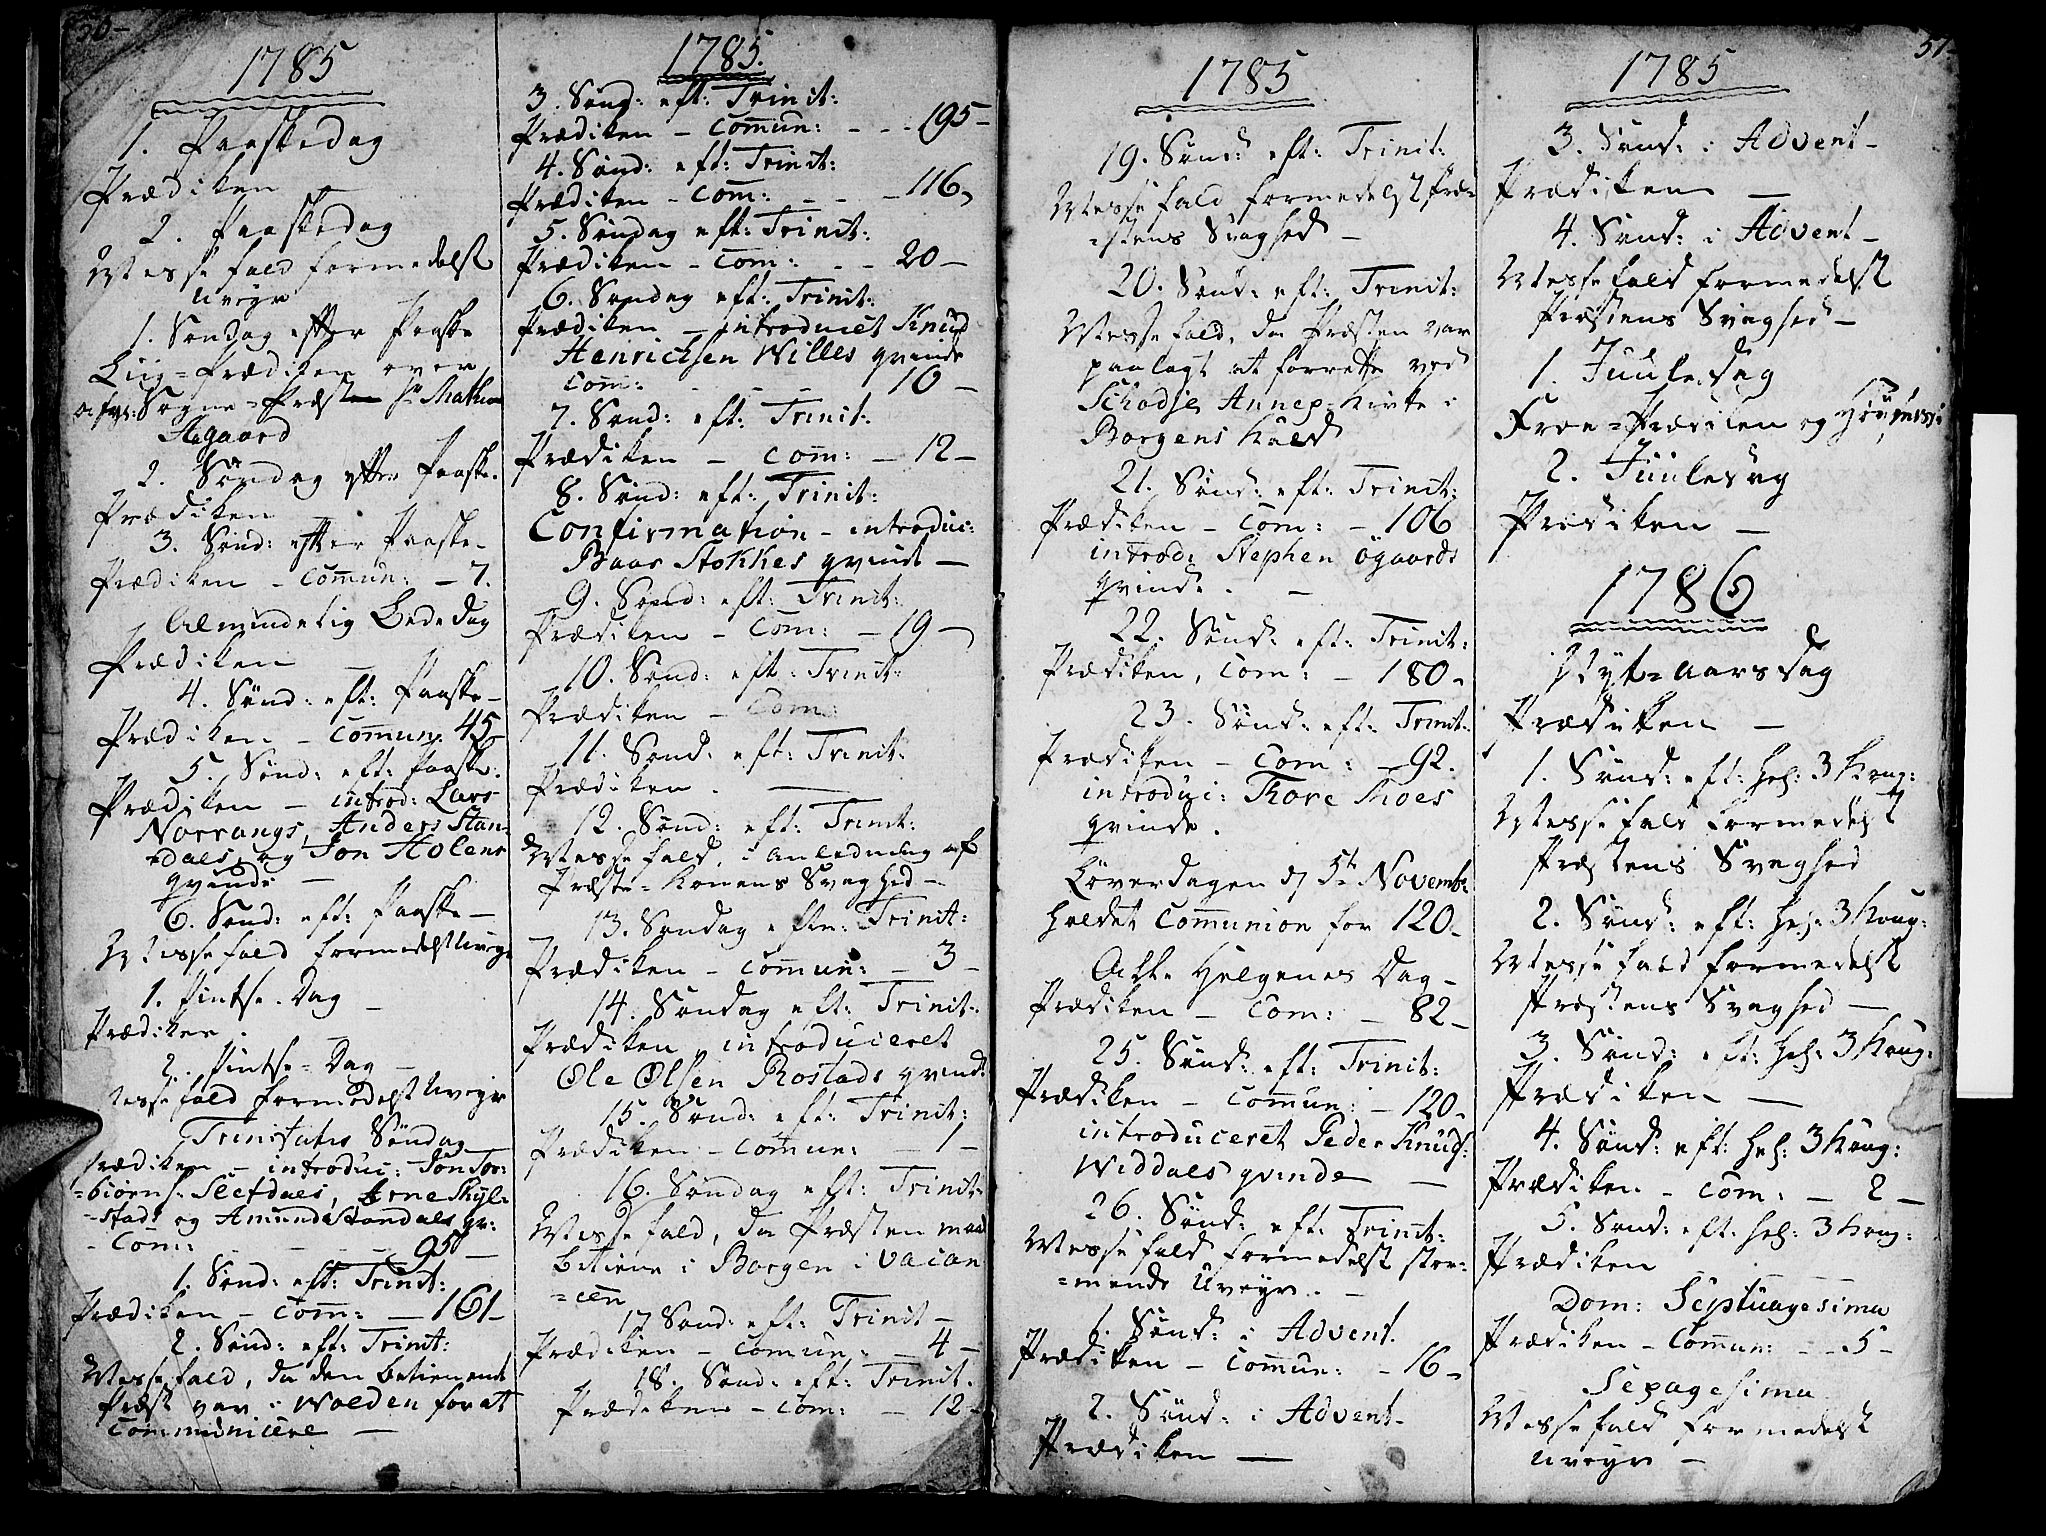 50-
1785
1. Paaskedag
Prædiken
2. Paaskedag
Messefald formedelst
Uveyr
1. Søndag efter Paaske
Liig=Prædiken over
Sogne=Præsten Hr Mathias
Aagaard
2. Søndag efter Paaske.
Prædiken —
3. Sönd: efter Paaske-
Prædiken - Commun: - 7.
Almindelig Bededag
Prædiken —
4. Sönd: eft: Paaske-
Prædiken - Commun: 45-
5. Sönd: eft: Paaske.
Prædiken - introd: Lars
Norrangs, Anders Stan-
-dals, og Jon Holens
qvinde —
6. Sönd: eft: Paaske-
Messefald formedelst Uveyr
1. Pintse-Dag -
Prædiken.
2. Pintse=Dag -
Messefald formedelst Uveyr
Trinitatis Søndag
Prædiken - introduc: Jon Tor:
=biörns: Sletdals, Arne Skyl=
=stads og Amund Standals qv:
- Com: - - - 95 -
1. Sönd: eft: Trinit:
Prædiken - Com: - 161-
2. Sönd: eft: Trinit:
Messefald, da den betienende
Præst var i Wolden for at
Communicere —
1785.
3. Sönd: eft: Trinit:
Prædiken - Commun: - - - 195-
4. Sönd: eft: Trinit:
Prædiken - Com: - - - 116-
5. Søndag eft: Trinit:
Prædiken - Com: - - - 20-
6. Søndag eft: Trinit:
Prædiken - introducet Knud
Henrichsen Willes qvinde
Com: - - - 10-
7. Sönd: eft: Trinit:
Prædiken - Com: - 12-
8. Sönd: eft: Trinit:
Confirmation - introduc:
Baar Stokkes qvinde —
9. Sönd: eft: Trinit:
Prædiken - Com: - 19-
10. Sönd: eft: Trinit:
Prædiken - Com:
11. Sönd: eft: Trinit:
Prædiken. —
12. Sönd: eft: Trinit:
Messefald, i anledning af
Præste=Konens Svaghed -
13. Søndag eften: Trinit:
Prædiken - Commun: - 3-
14. Søndag eft: Trinit:
Prædiken, introduceret
Ole Olsen Rostads qvinde
15. Sönd: eft: Trinit:
Prædiken - Commun: - 1-
16. Søndag eft: Trinit:
Messefald, da Præsten maatte
betiene i Borgen i vacan
=cen
17 Sönd: eft: Trinit-
Prædiken - Commun: - 4-
18. Sönd: eft: Trinit.
Prædiken - Com: - 12-
1785
19. Sönd: eft: Trinit:
Messefald formedelst Præ=
=stens Svaghed -
20. Sönd: eft: Trinit:
Messefald, da Præsten var
paalagt at forrette ved
Schodje Annex-Kirke i
Borgens Kald
21. Sönd: eft: Trinit:
Prædiken - Com: - 106
introd: Stephen Øgaards
qvinde. -
22. Sönd: eft: Trinit:
Prædiken, Com: - 180-
23. Sönd: eft: Trinit:
Prædiken - Com: - 92.
introduc: Tore Moes
qvinde.
Løverdagen d 5te Novembr
holdet Communion for 120-
Alle Helgenes Dag-
Prædiken - Com: - 82-
25. Sönd: eft: Trinit:
Prædiken - Commun: - 120-
introduceret Peder Knuds:
Widdals qvinde —
26. Sönd: eft: Trinit:
Messefald formedelst stor=
=mende Uveyr. -
1. Sönd: i Advent.
Prædiken - Commun: - 16-
2. Sönd: i Advent-
Prædiken —
51-
1785
3. Sönd: i Advent-
Prædiken —
4. Sönd: i Advent-
Messefald formedelst
Præstens Svaghed-
1. Juuledag
Froe=Prædiken og Höymesse
2. Juuledag
Prædiken —
1786
Nyt=aarsdag
Prædiken —
1. Sönd: eft: Hel: 3 Kong:
Messefald formedelst
Præstens Svaghed
2. Sönd: eft: Hel: 3 Kong:
Messefald formedelst
Præstens Svaghed —
3. Sönd: eft: Hel: 3 Kong:
Prædiken —
4. Sönd: eft: Hel: 3 Kong:
Prædiken - Com: - 2-
5. Sönd: eft: Hel: 3 Kong:
Prædiken
Dom: Septuagesima
Prædiken - Commun: - - 5-
Sexagesima
Messefald formedelst
Uveyr —